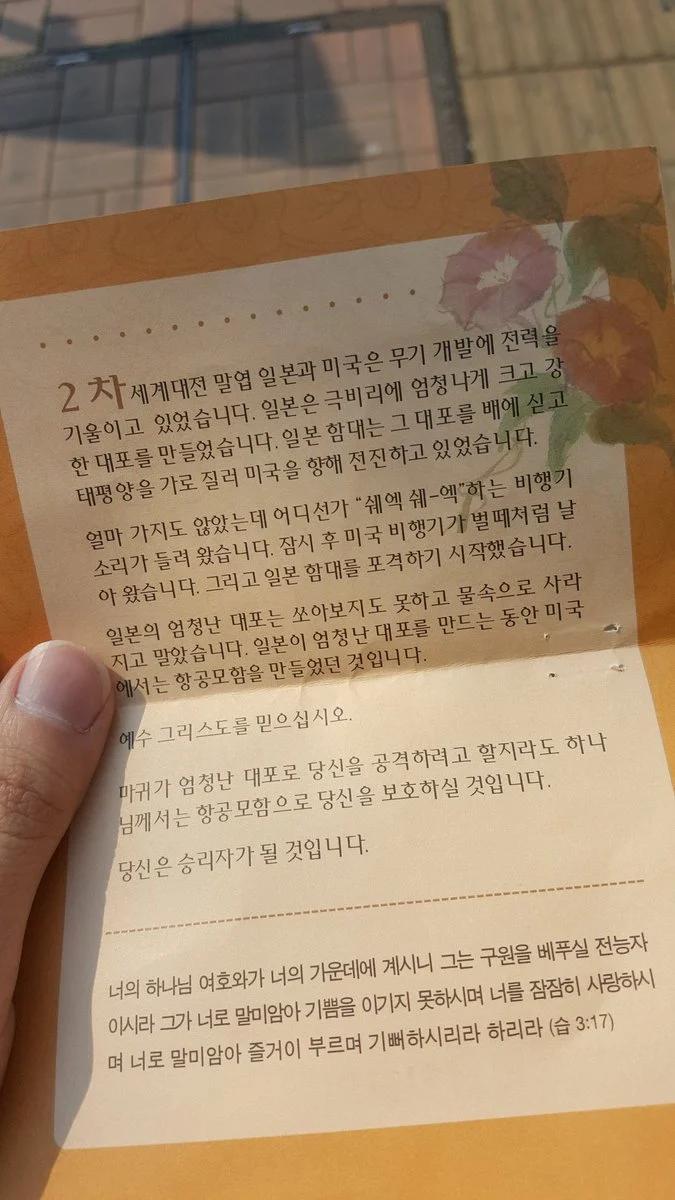 2차 세계대전 말엽 일본과 미국은 무기 개발에 전력을
기울이고 있었습니다. 일본은 극비리에 엄청나게 크고 강
한 대포를 만들었습니다. 일본 함대는 그 대포를 배에 싣고
태평양을 가로 질러 미국을 향해 전진하고 있었습니다.
얼마 가지도 않았는데 어디선가 “쉐엑 쉐-엑”하는 비행기
소리가 들려 왔습니다. 잠시 후 미국 비행기가 벌떼처럼 날
아 왔습니다. 그리고 일본 함대를 포격하기 시작했습니다.
일본의 엄청난 대포는 쏘아보지도 못하고 물속으로 사라
지고 말았습니다. 일본이 엄청난 대포를 만드는 동안 미국
에서는 항공모함을 만들었던 것입니다.
예수 그리스도를 믿으십시오.
마귀가 엄청난 대포로 당신을 공격하려고 할지라도 하나
님께서는 항공모함으로 당신을 보호하실 것입니다.
당신은 승리자가 될 것입니다.
너의 하나님 여호와가 너의 가운데에 계시니 그는 구원을 베푸실 전능자
이시라 그가 너로 말미암아 기쁨을 이기지 못하시며 너를 잠잠히 사랑하시
며 너로 말미암아 즐거이 부르며 기뻐하시리라 하리라 (습 3:17)